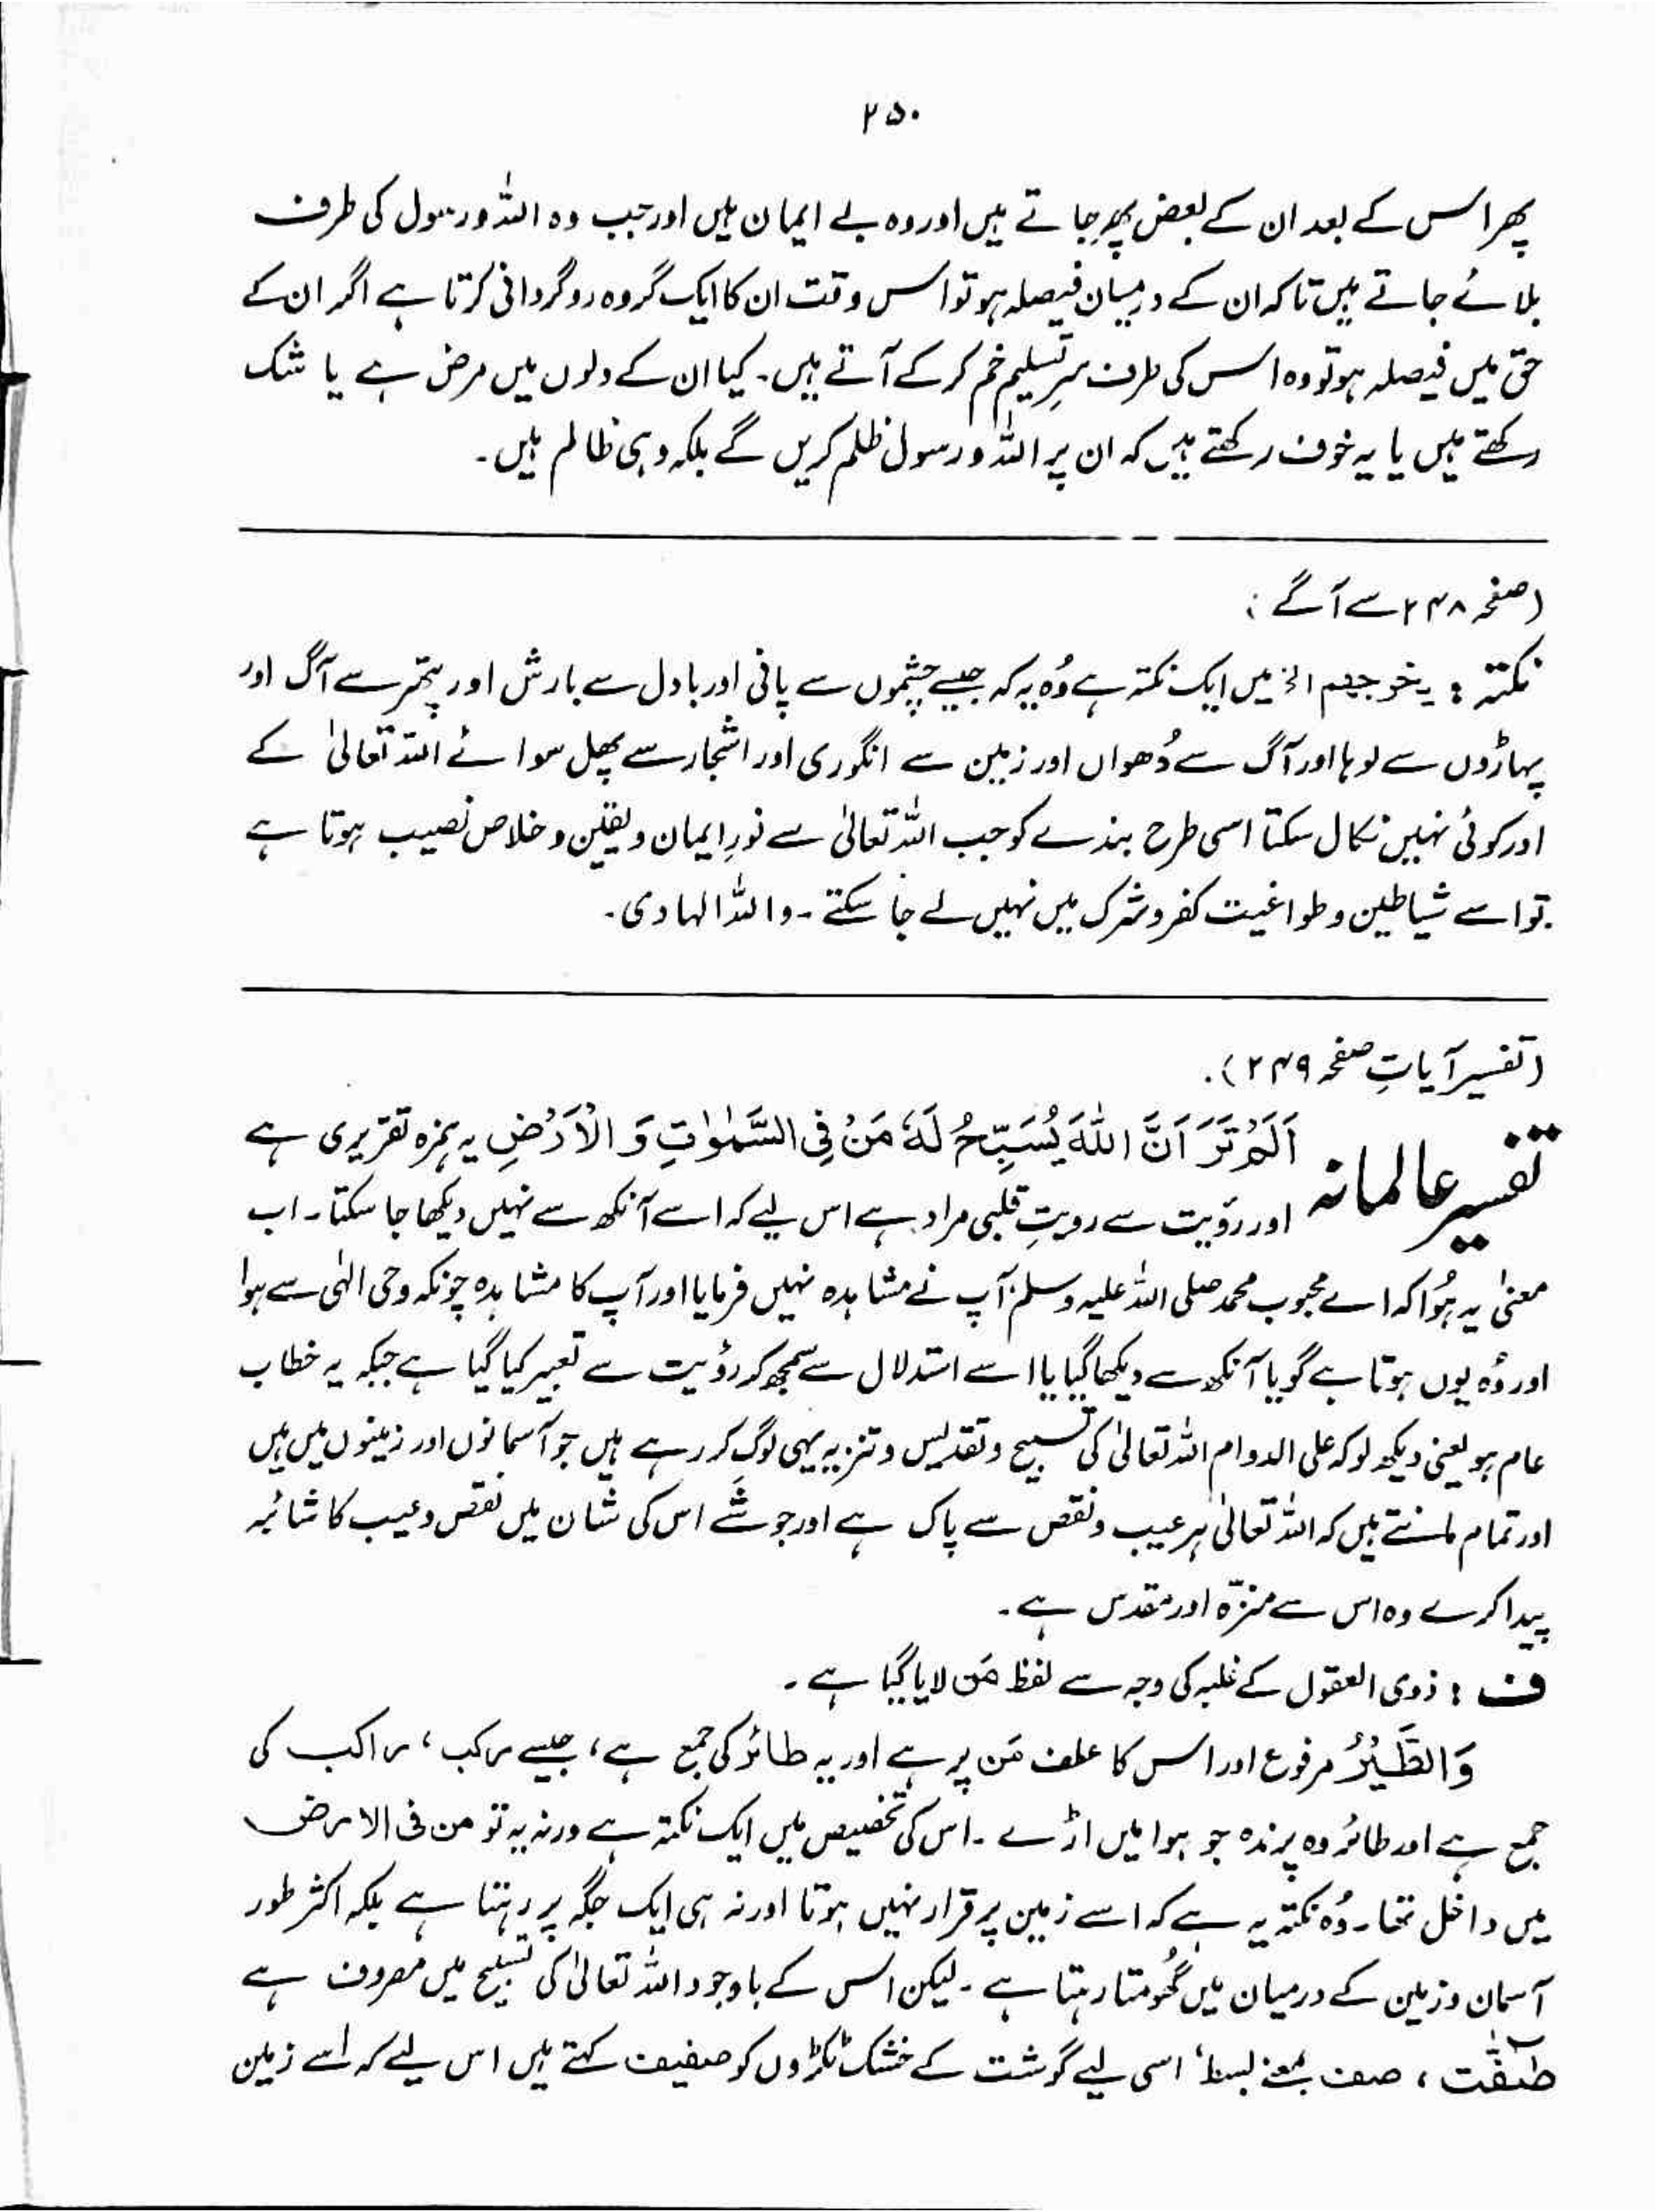 ۲۵۰
پھر اس کے بعد ان کے بعض پھر جاتے ہیں اور وہ بے ایمان ہیں اور جب وہ اللہ و رسول کی طرف
بلائے جاتے ہیں تاکہ ان کے درمیان فیصلہ ہو تو اس وقت ان کا ایک گروہ روگردانی کرتا ہے اگر ان کے
حق میں فیصلہ ہو تو وہ اس کی طرف سرِ تسلیم خم کر کے آتے ہیں۔ کیا ان کے دلوں میں مرض ہے یا شک
رکھتے ہیں یا یہ خوف رکھتے ہیں کہ ان پر اللہ و رسول ظلم کریں گے بلکہ وہی ظالم ہیں۔
(صفحہ ۲۴۸ سے آگے:
نکتہ : یخرجھم الخ میں ایک نکتہ ہے وُہ یہ کہ جیسے چشموں سے پانی اور بادل سے بارش اور پتھر سے آگ اور
پہاڑوں سے لوہا اور آگ سے دُھواں اور زمین سے انگوری اور اشجار سے پھل سوائے اللہ تعالیٰ کے
اور کوئی نہیں نکال سکتا اسی طرح بندے کو جب اللہ تعالیٰ سے نورِ ایمان و یقین و خلاص نصیب ہوتا ہے
تو اسے شیاطین و طواغیت کفر و شرک میں نہیں لے جا سکتے۔ واللہ الہادی۔
(تفسیر آیاتِ صفحہ ۲۴۹)۔
تفسیر عالمانہ اَلَمْ تَرَ اَنَّ اللّٰہَ یُسَبِّحُ لَہٗ مَنْ فِی السَّمٰوٰتِ وَ الْاَرْضِ یہ ہمزہ تقریری ہے
اور رؤیت سے رویتِ قلبی مراد ہے اس لیے کہ اسے آنکھ سے نہیں دیکھا جا سکتا۔ اب
معنیٰ یہ ہُوا کہ اے محبوب محمد صلی اللہ علیہ وسلم آپ نے مشاہدہ نہیں فرمایا اور آپ کا مشاہدہ چونکہ وحی الٰہی سے ہوا
اور وُہ یوں ہوتا ہے گویا آنکھ سے دیکھا گیا یا اسے استدلال سے سمجھ کر رؤیت سے تعبیر کیا گیا ہے جبکہ یہ خطاب
عام ہو یعنی دیکھ لو کہ علی الدوام اللہ تعالیٰ کی تسبیح و تقدیس و تنزیہ یہی لوگ کر رہے ہیں جو آسمانوں اور زمینوں میں ہیں
اور تمام مانتے ہیں کہ اللہ تعالیٰ ہر عیب و نقص سے پاک ہے اور جو شَے اس کی شان میں نقص و عیب کا شائبہ
پیدا کرے وہ اس سے منزّہ اور مقدس ہے۔
ف : ذوی العقول کے غلبہ کی وجہ سے لفظ مَن لایا گیا ہے۔
وَالطَّیْرُ مرفوع اور اس کا عطف مَن پر ہے اور یہ طائر کی جمع ہے، جیسے رکب، راکب کی
جمع ہے اور طائر وہ پرندہ جو ہوا میں اڑے۔ اس کی تخصیص میں ایک نکتہ ہے ورنہ یہ تو من فی الارض
میں داخل تھا۔ وُہ نکتہ یہ ہے کہ اسے زمین پر قرار نہیں ہوتا اور نہ ہی ایک جگہ پر رہتا ہے بلکہ اکثر طور
آسمان و زمین کے درمیان میں گھُومتا رہتا ہے۔ لیکن اس کے باوجود اللہ تعالیٰ کی تسبیح میں مصروف ہے
صٰٓفّٰت، صف بمعنے بسط، اسی لیے گوشت کے خشک ٹکڑوں کو صفیف کہتے ہیں اس لیے کہ اسے زمین